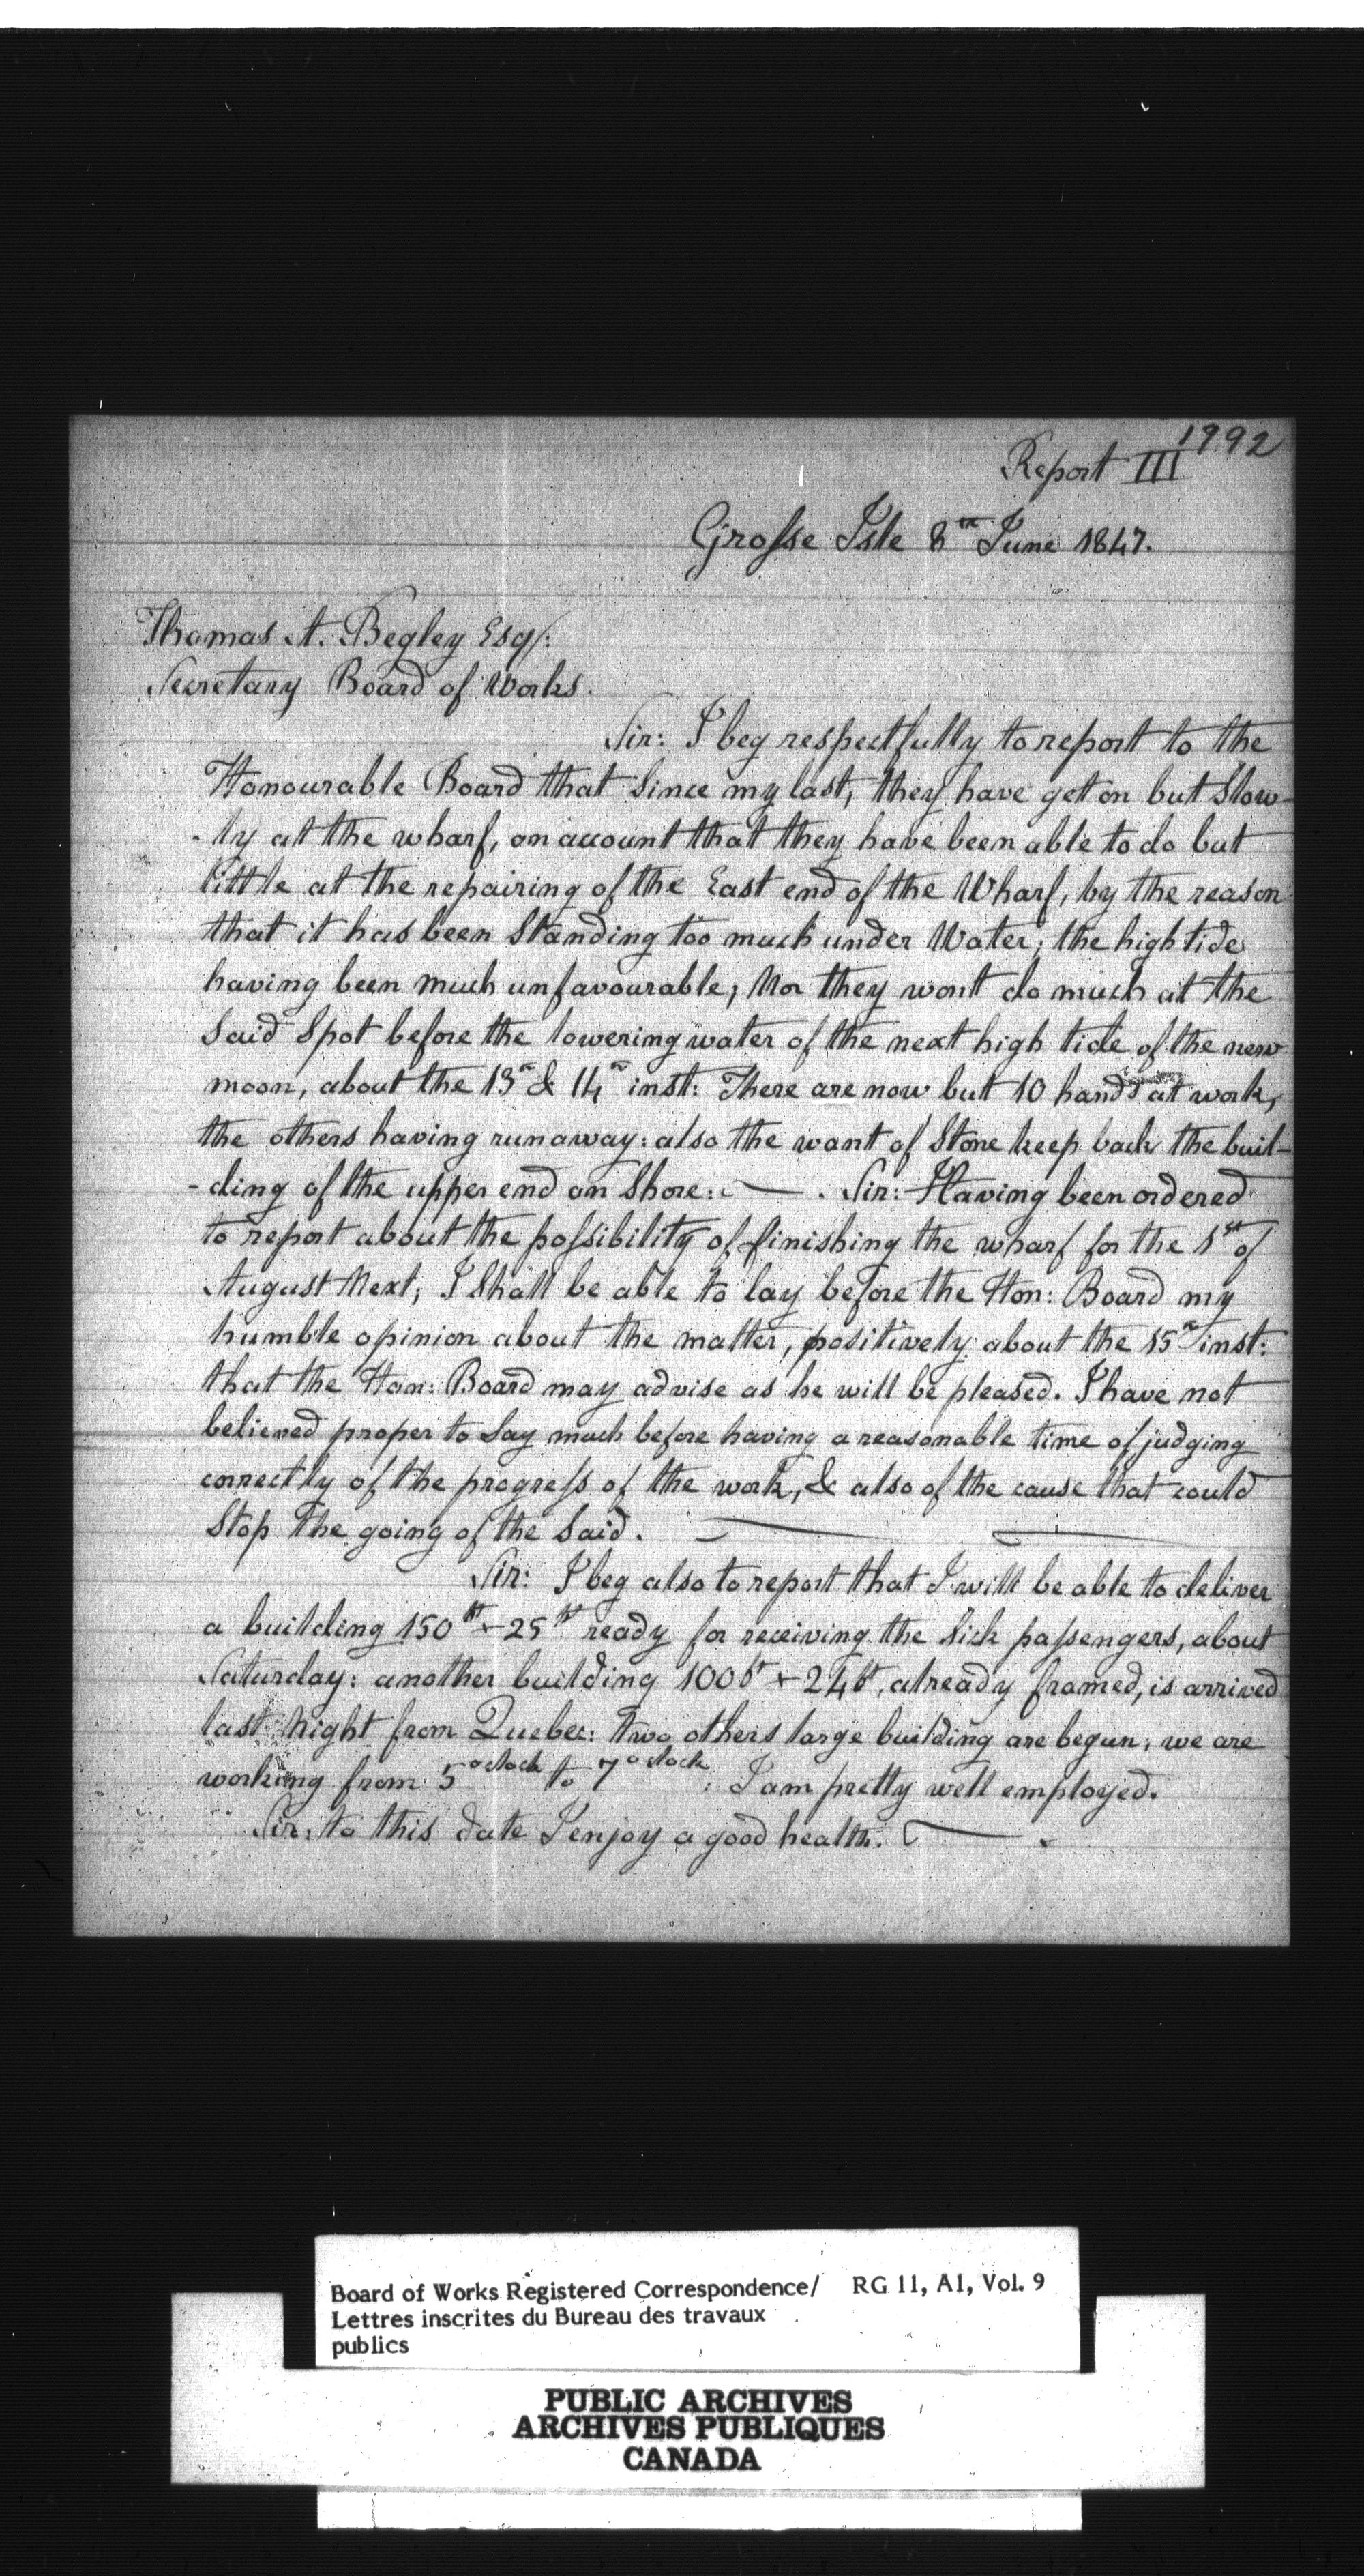 1992
Report III
Grosse Isle 8th June 1847.
Thomas A. Begley Esqr:
Secretary Board of Works.
Sir: I beg respectfully to report to the
Honourable Board that Since my last, they have get on but Slow-
-ly at the wharf, on account that they have been able to do but
little at the repairing of the East end of the Wharf, by the reason
that it has been Standing too much under Water; the high tide
having been much unfavourable; Nor they wont do much at the
Said Spot before the lowering water of the next high tide of the new
moon, about the 13th & 14th inst: There are now but 10 hands at work,
the others having run away: also the want of Stone keep back the buil-
-ding of the upper end on Shore: — . Sir: Having been ordered
to report about the possibility of finishing the wharf for the 1st of
August Next; I Shall be able to lay before the Hon: Board my
humble opinion about the matter, positively about the 15th inst:
that the Hon: Board may advise as he will be pleased. I have not
believed proper to Say much before having a reasonable time of judging
correctly of the progress of the work, & also of the cause that could
Stop the going of the Said. — —
Sir: I beg also to report that I will be able to deliver
a building 150ft + 25ft ready for receiving the Sick passengers, about
Saturday: another building 100ft + 24ft, already framed, is arrived
last Night from Quebec: two others large building are begun; we are
working from 5 o'clock to 7 o'clock: I am pretty well employed.
Sir: to this date I enjoy a good health. —
Board of Works Registered Correspondence/ RG 11, A1, Vol. 9
Lettres inscrites du Bureau des travaux
publics
PUBLIC ARCHIVES
ARCHIVES PUBLIQUES
CANADA